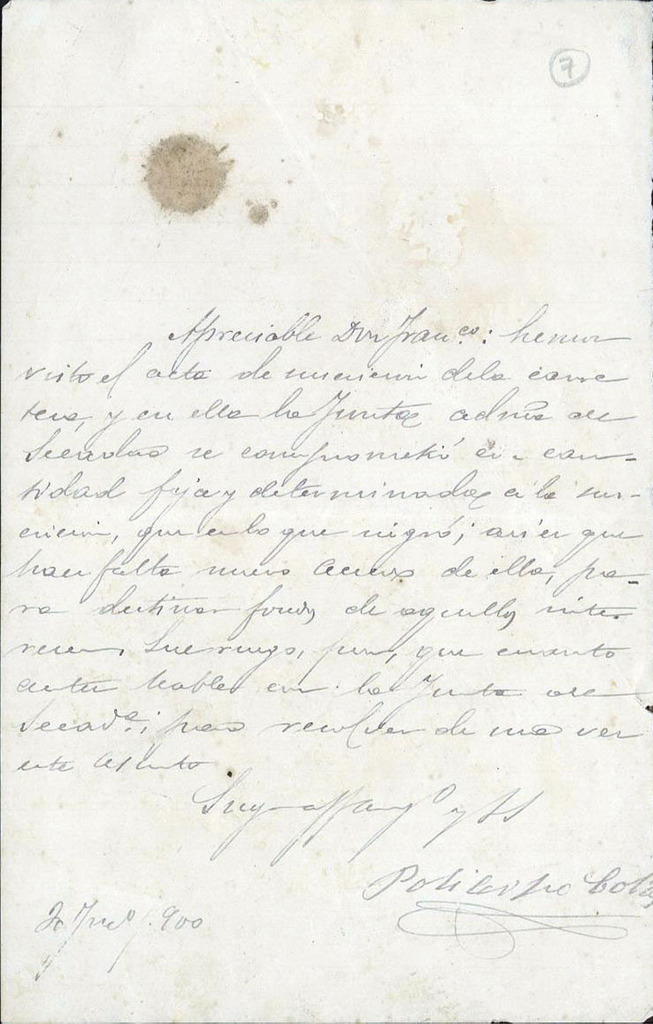 7
Apreciable Don Fran.co: hemos
visto el acta de suscricion dela carre
tera, y en ella la Junta admõn de
se comprometió con can-
tidad fija y determinada a la sus-
cricion, que es lo que ; asi es que
hace falta nuevo acuerdo de ella, pa-
ra destinar fondos de aquellos inte-
reses. Le ruego, pues, que cuanto
antes hable con la Junta de
; para resolver de una vez
este asunto
Suyo aff amgo y SS
Policarpo
900